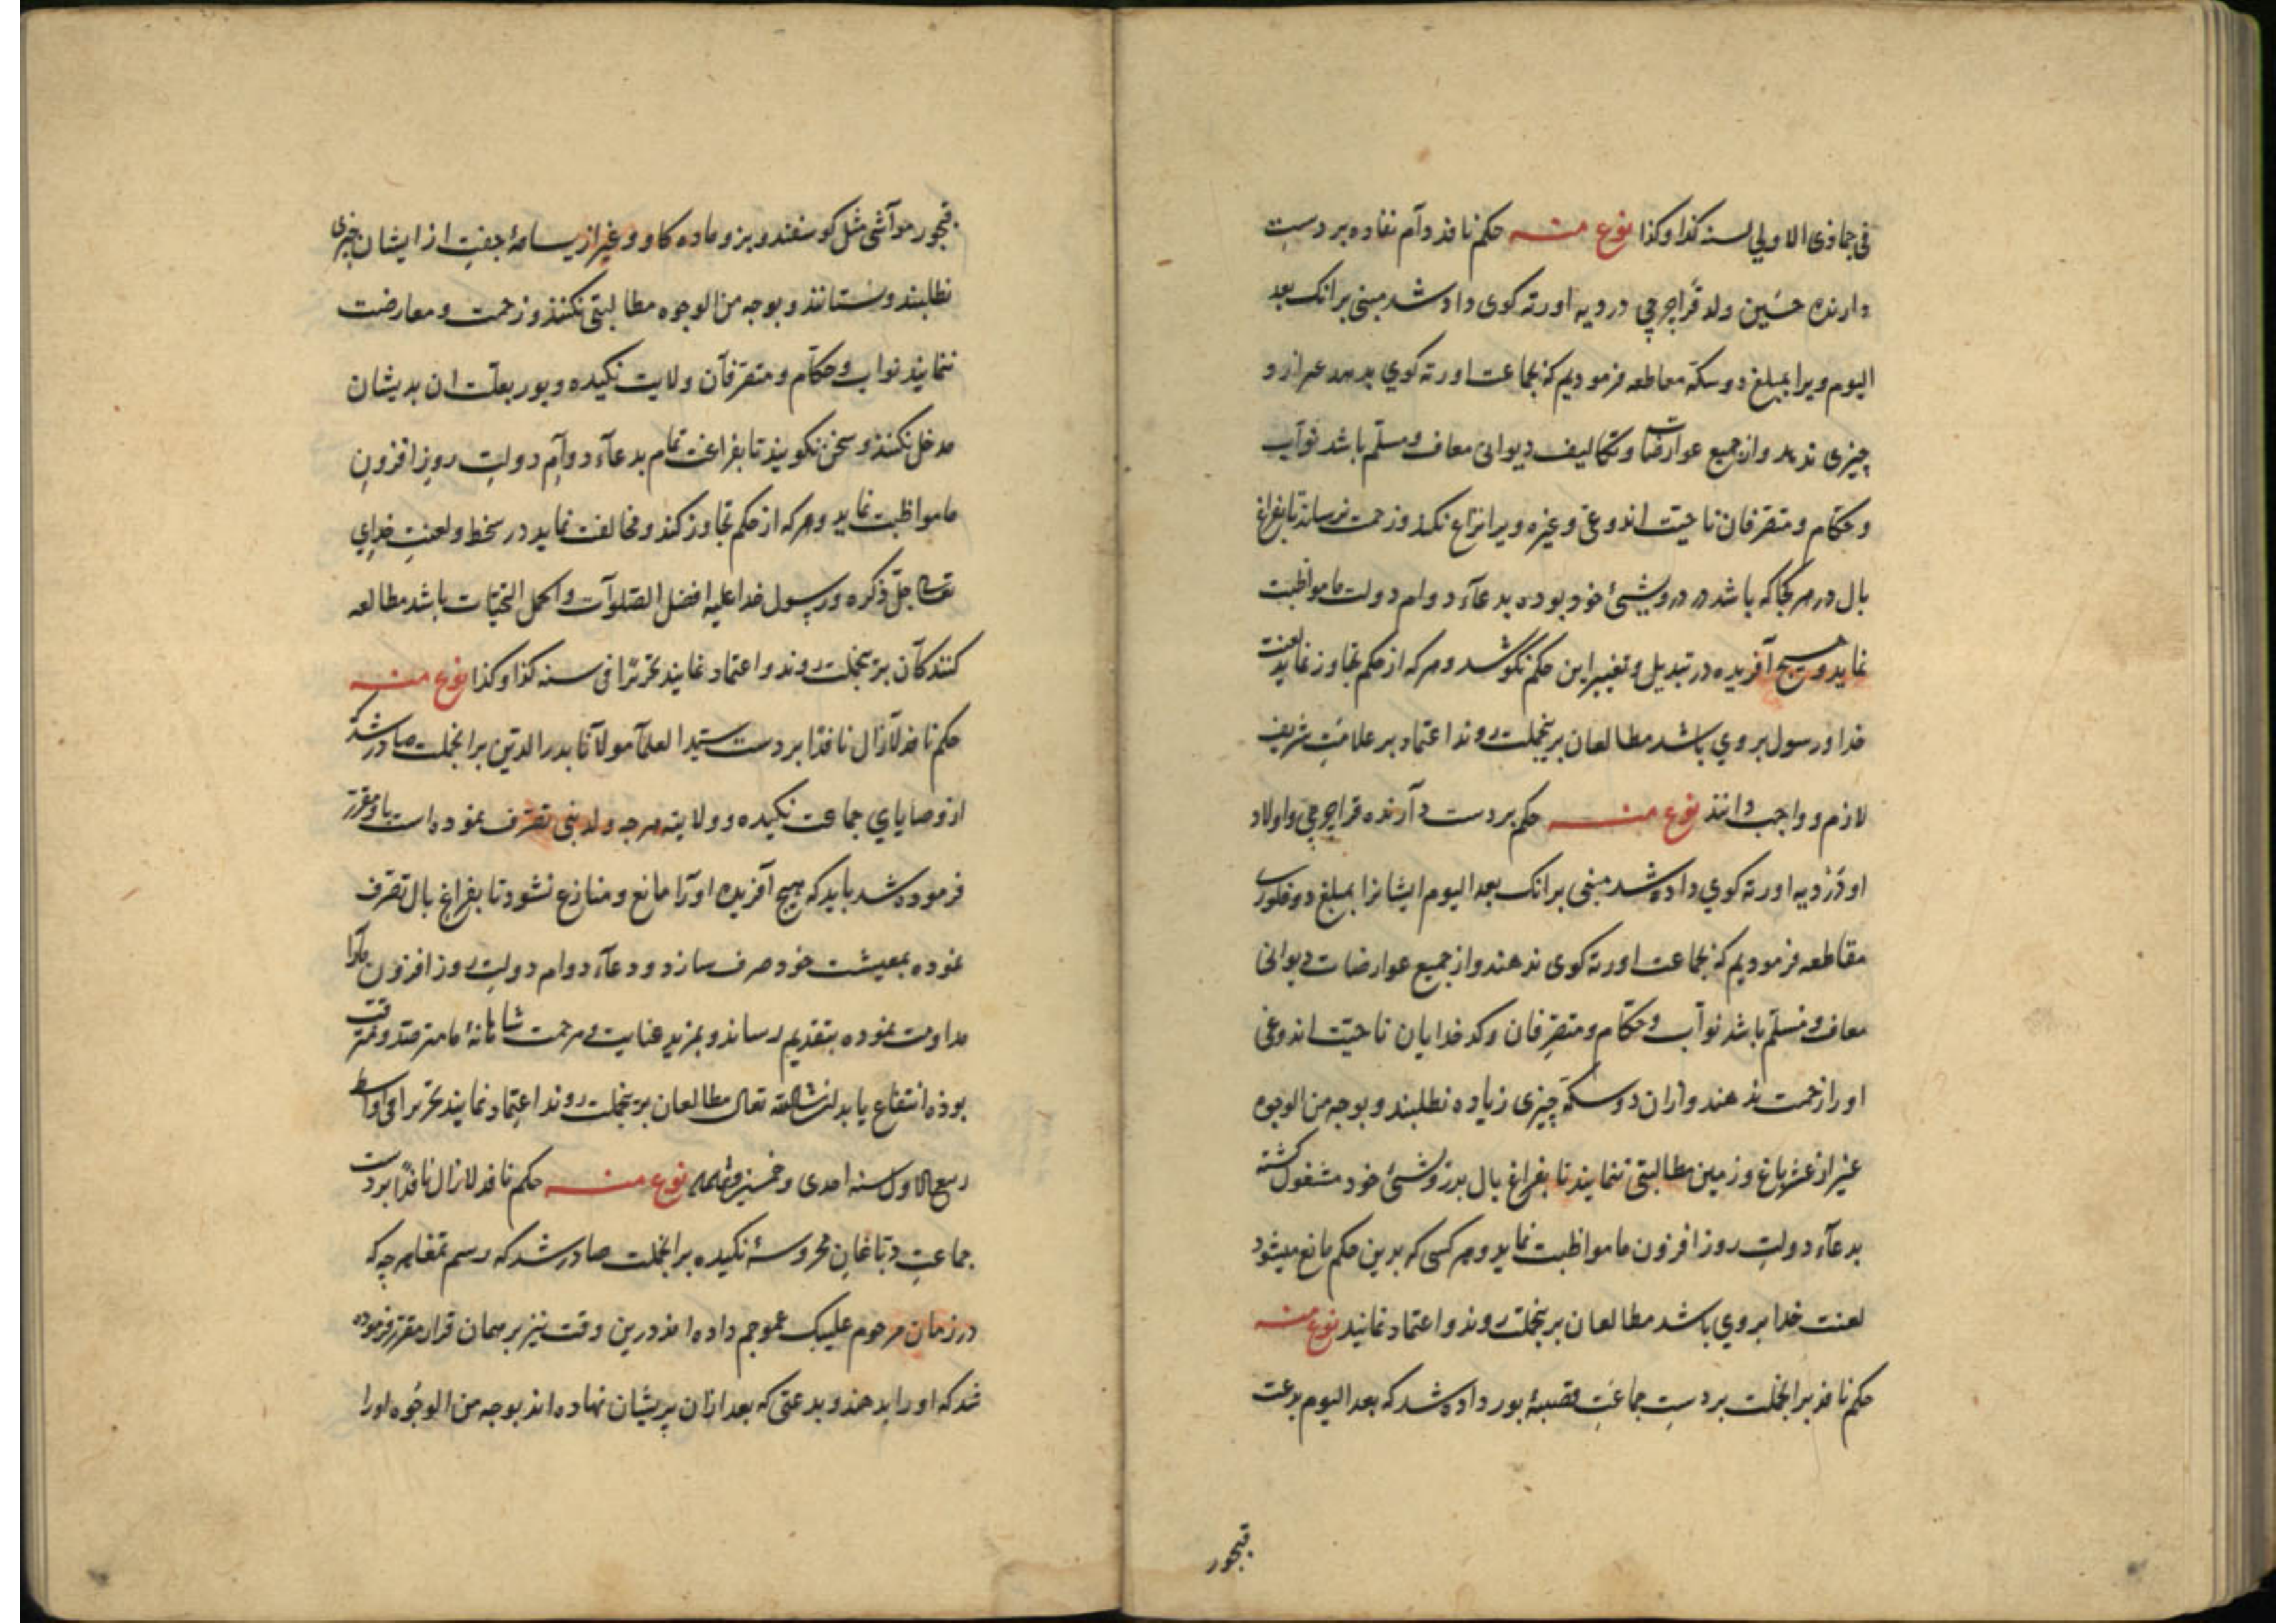 فی جماذی الاولی لسنه کذا وکذا نوع منه حکم نافذ دآم نفاده بر دست
دارنده حسین ولد قراجوجی در دیه اورته کوی داده شد مبنی برانک بعد
الیوم ویرا بمبلغ دو سکه معاطعه فرمودیم که بجماعت اورته کوي بدهد غیر ازو
چیزی ندهد واز جمیع عوارضات وتکالیف دیوانی معاف ومسلم باشد نوآب
وحکام ومتصرفان ناحیت اندوغی وغیره ویرا نزاع نکند وزحمت نرسانند تا بفراغ
بال در هر کجا که باشد در درویشئ خود بوده بدعآء دوام دولت ما مواظبت
نماید وهیچ آفریده در تبدیل وتغییر این حکم نکوشد وهر که از حکم تجاوز نماید لعنت
خدا ورسول بروي باشد مطالعان برینجملت روند اعتماد بر علامت شریف
لازم وواجب دانند نوع منه حکم بر دست دآرنده قراجوجی واولاد
او در دیه اورته کوي داده شد مبنی برانک بعد الیوم ایشانرا بمبلغ دو فلوری
مقاطعه فرمودیم که بجماعت اورته کوی ندهند واز جمیع عوارضات دیوانی
معاف ومسلم باشد نوآب وحکام ومتصرفان وکدخدایان ناحیت اندوغی
اورا زحمت ندهند وازان دو سکه چیزی زیاده نطلبند وبوجه من الوجوه
غیر از عشر باغ وزمین مطالبتی ننمایند تا بفراغ بال بدرویشئ خود مشغول کشته
بدعآء دولت روز افزون ما مواظبت نماید وهر کسی که بدین حکم مانع میشود
لعنت خدا بروي باشد مطالعان برینجملت روند واعتماد نمایند نوع منه
حکم نافذ برانجملت بر دست جماعت قصبۀ بور داده شد که بعد الیوم بدعت
قبجور
قبجور موآشی مثل کوسفند وبز وماده کاو وغیر از یسامۀ جفت از ایشان چیزی
نطلبند ونستانند وبوجه من الوجوه مطالبتی نکنند وزحمت ومعارضت
ننمایند نواب وحکام ومتصرفآن ولایت نکیده وبور بعلت ان بدیشان
مدخل نکنند وسخن نکویند تا بفراغت تمام بدعآء دوآم دولت روز افزون
ما مواظبت نماید وهر که از حکم تجاوز کند ومخالفت نماید در سخط ولعنت خدای
تعالی جل ذکره ورسول خدا علیه افضل الصلوآت واکمل التحیات باشد مطالعه
کنندکآن برینجملت روند واعتماد نمایند تحریرا فی سنه کذا وکذا نوع منه
حکم نافذ لآزال نافذا بر دست سید العلمآ مولآنا بدر الدین برانجملت صادر شد که
از وصایاي جماعت نکیده وولایته هر چه ولد بنی تصرف نموده است باو مقرر
فرموده شد باید که هیچ آفریده اورا مانع ومنازع نشود تا بفراغ بال تصرف
نموده بمعیشت خود صرف سازد ودعآء دوام دولت روز افزون مارا
مداومت نموده بتقدیم رساند وبمزید عنایت ومرحمت شاهانۀ ما مترصد ومترقب
بوده انتفاع یابد انشاالله تعالی مطالعان برینجملت روند اعتماد نمایند تحریرا فی اواسط
ربیع الاول سنه احدی وخمسین نوع منه حکم نافذ لازال نافذا بر دست
جماعت دباغان محروسۀ نکیده برانجملت صادر شد که رسم تمغا هر چه که
در زمان مرحوم علیبک عموجم داده اند درین وقت نیز بر همان قرار مقرر فرموده
شد که اورا بدهند وبدعتی که بعد ازان بریشان نهاده اند بوجه من الوجوه اورا